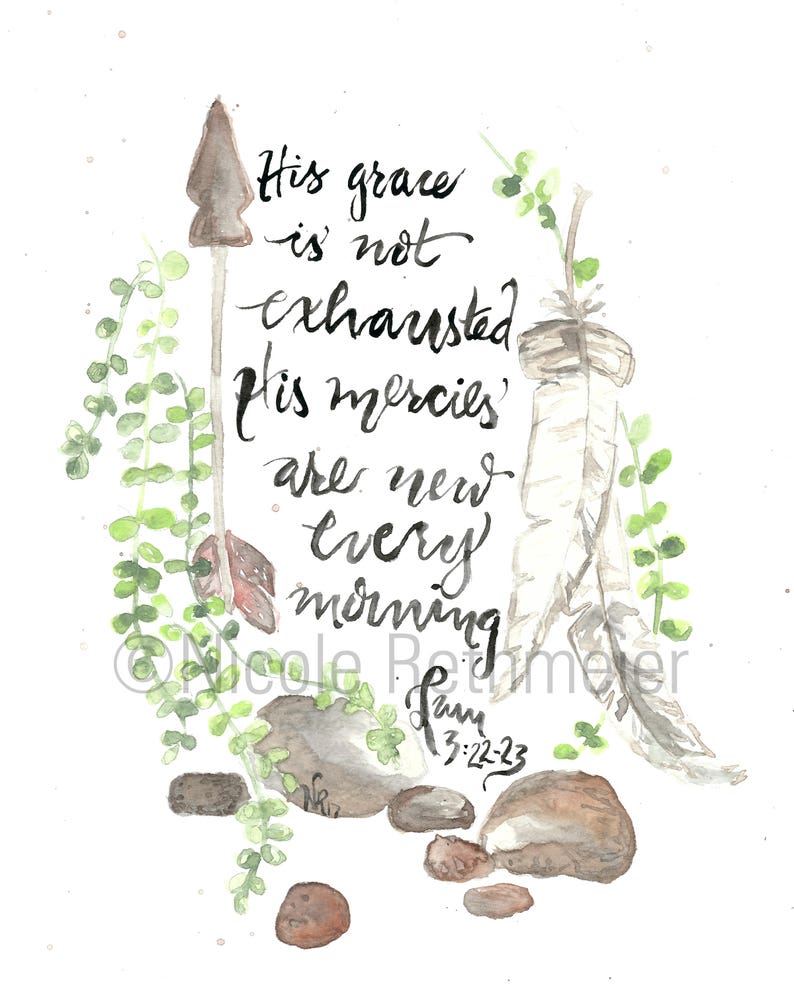 His grace
is not
exhausted
His mercies
are new
every
morning
©Nicole Rethmeier
Lam
3:22-23
NR17